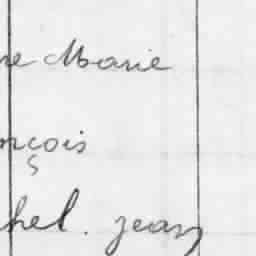 ne Marie
nçois
hel. jean